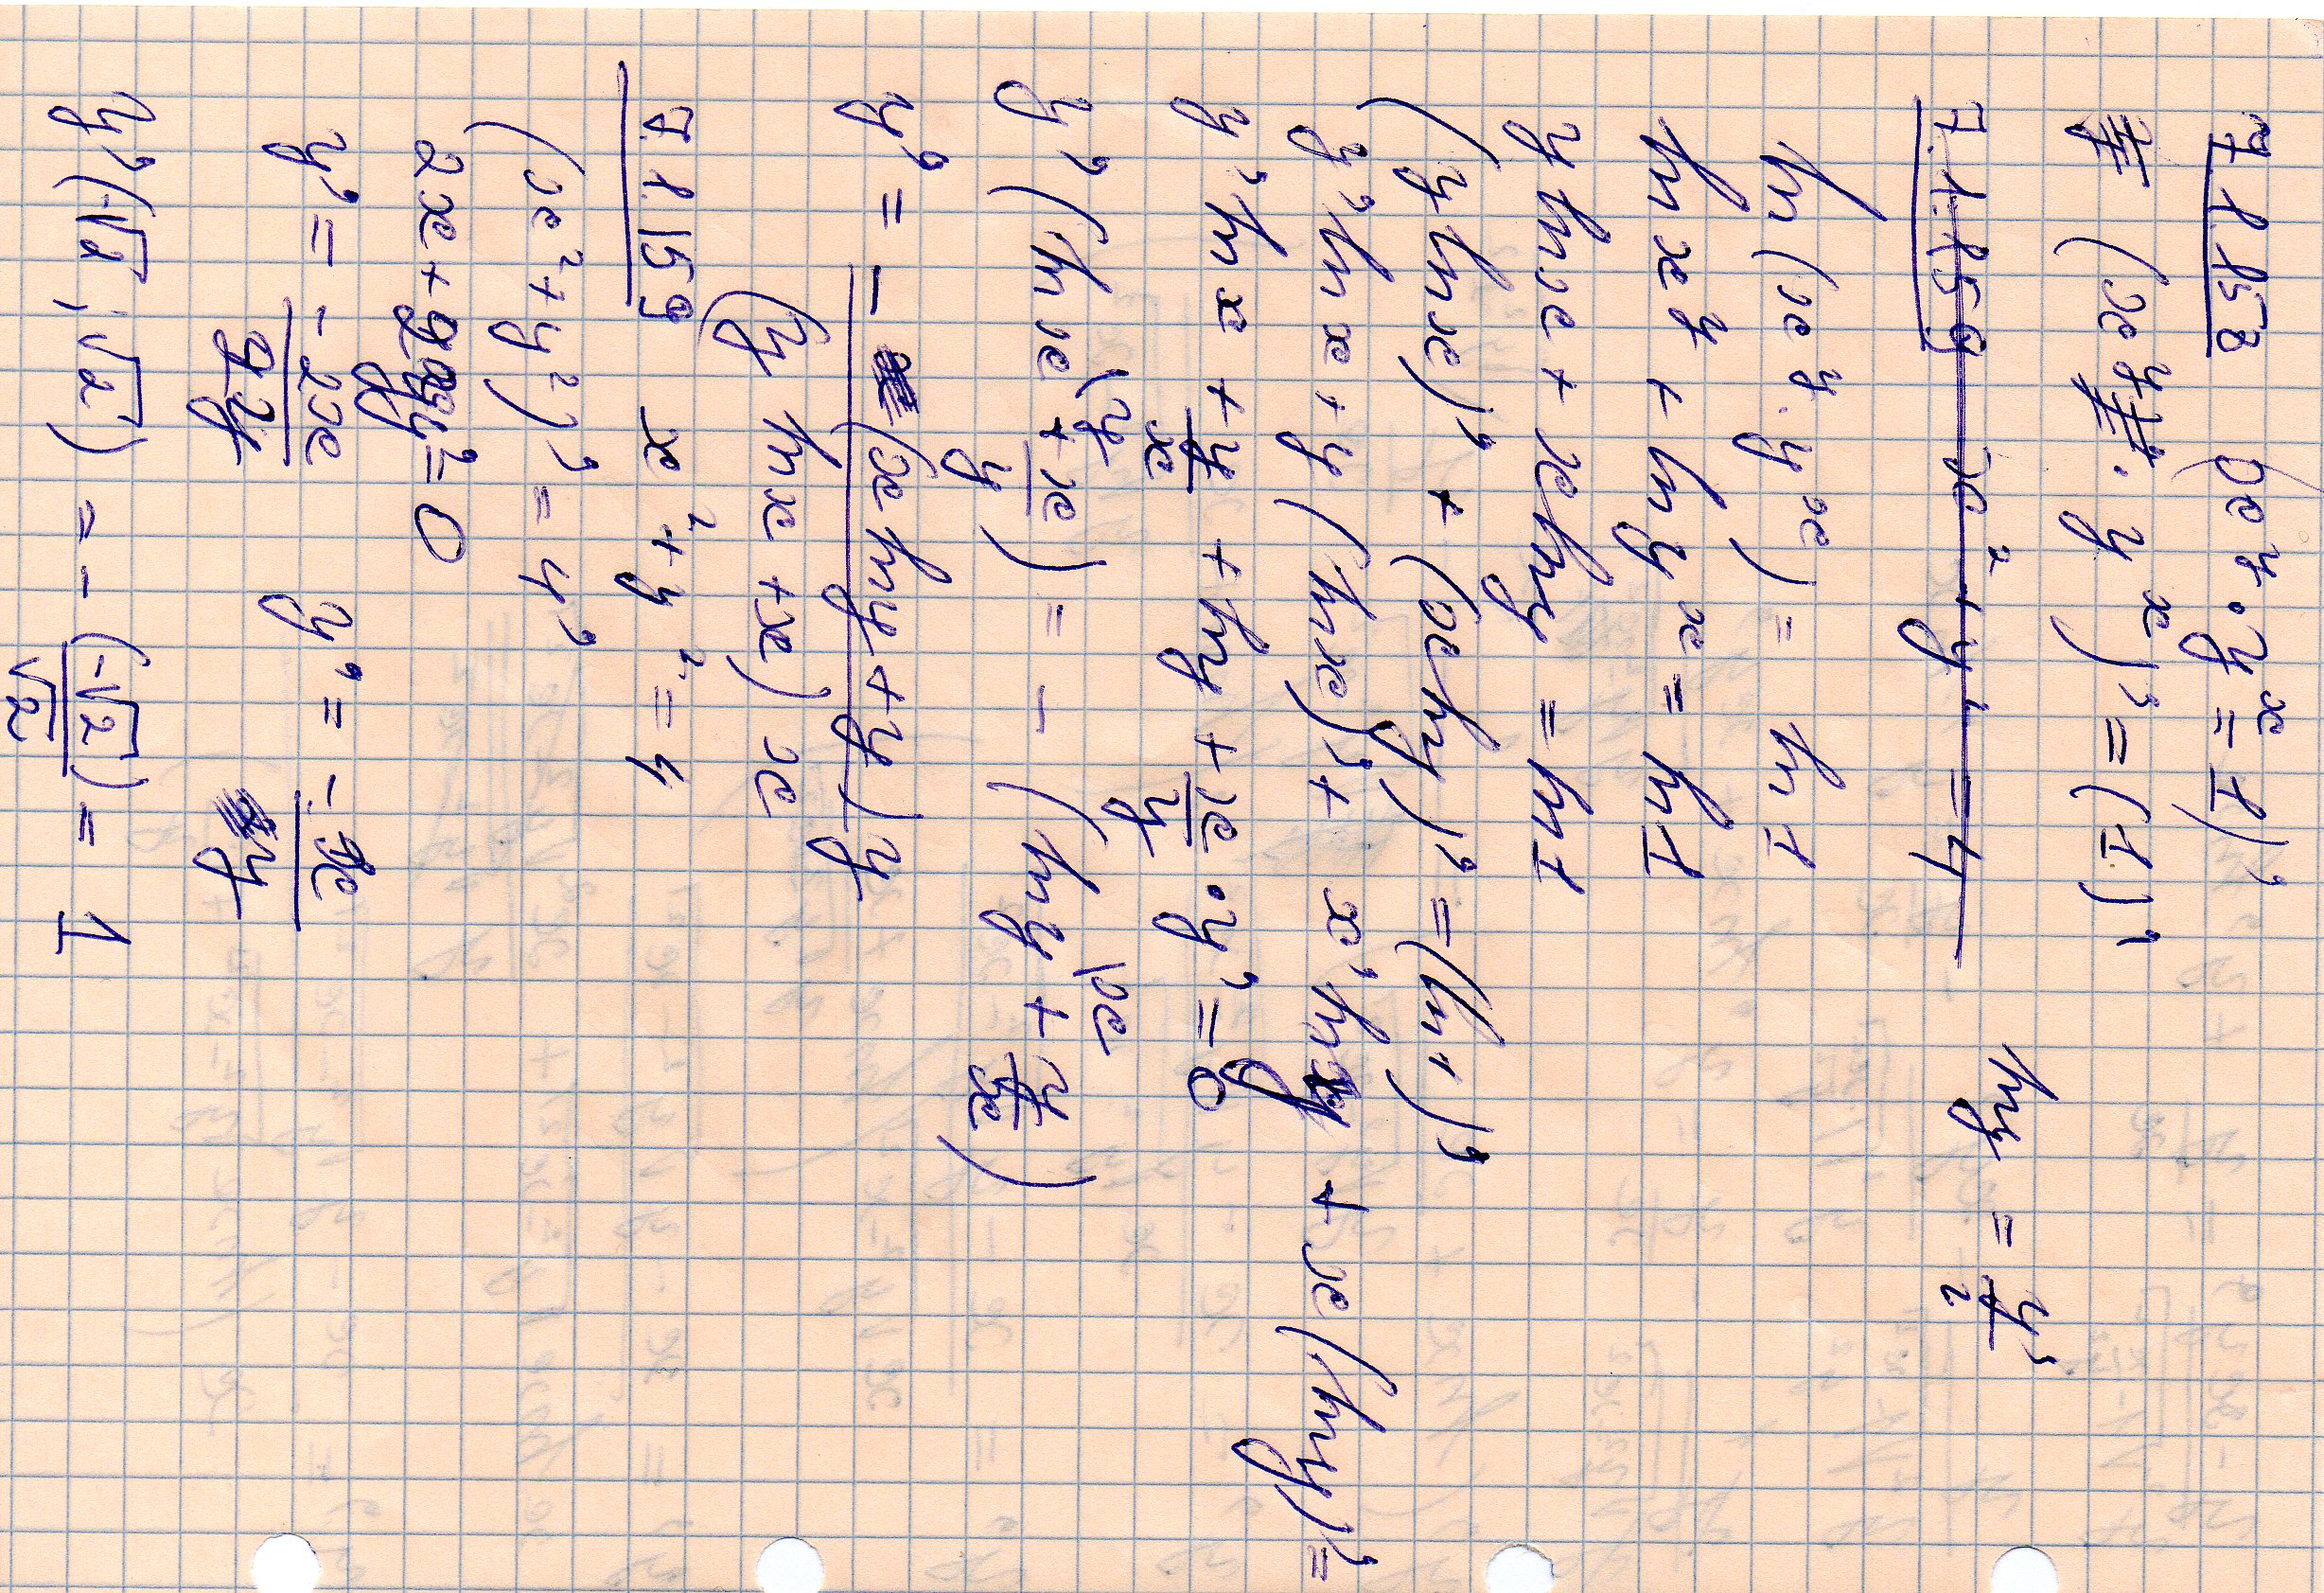 7.1.158 (x^y · y^x = 1)'
(x^y · y^x)' = (1)'
ln y = y'/2
7.1.159 x² + y² = 4
ln(x^y · y^x) = ln 1
ln x^y + ln y^x = ln 1
y ln x + x ln y = ln 1
(y ln x)' + (x ln y)' = (ln 1)'
y' ln x + y (ln x)' + x' ln y + x (ln y)' =
y' ln x + y/x + ln y + x/y · y' = 0
y' (ln x \y + x/y) = - (ln y \x + y/x)
y' = - (x ln y + y) y / (y ln x + x) x
7.1.159 x² + y² = 4
(x² + y²)' = 4'
2x + 2yy' = 0
y' = -2x/2y y' = -x/y
y' (-√2 ; √2) = - (-√2)/√2 = 1